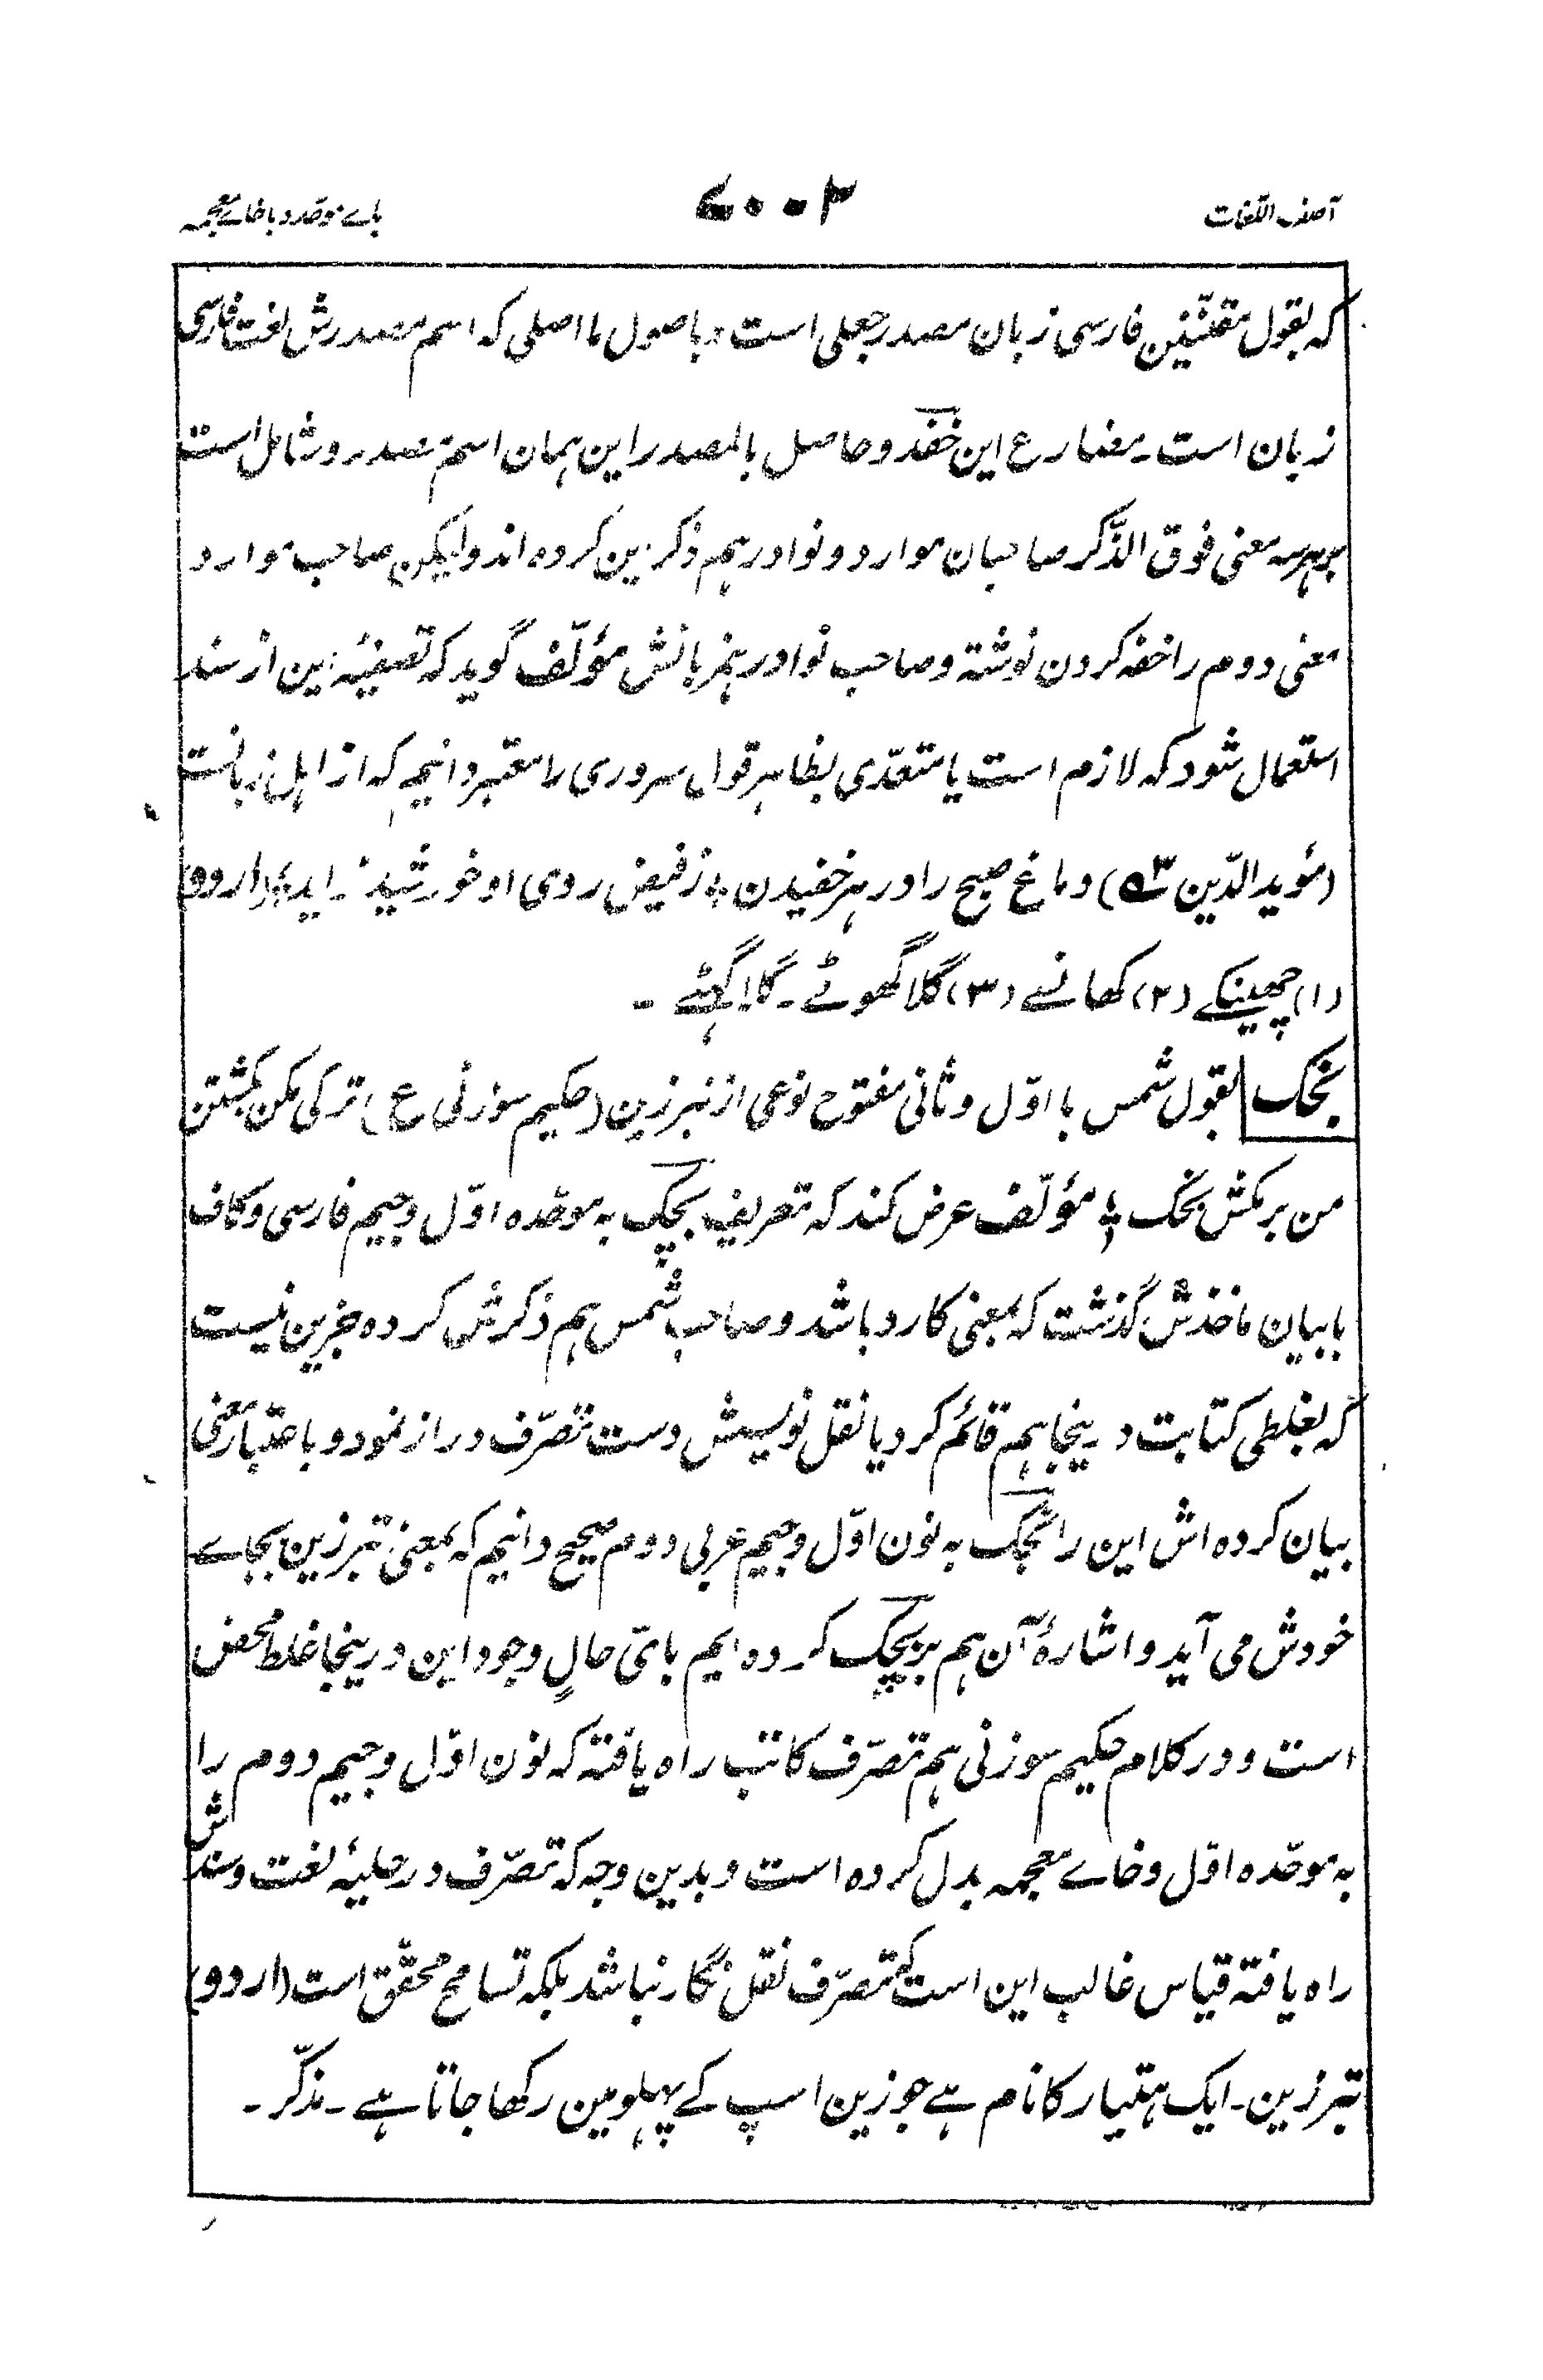 آصف اللّغات
باے موحّدہ با خاے معجمہ
کہ بقول مقنّنین فارسی زبان مصدر جعلی است و باصول ما اصلی کہ اسم مصدرش لغت فارسی
زبان است ۔ مضارع این خفد و حاصل بالمصدر این ہمان اسم مصدر و شامل است
بر ہر سہ معنی فوق الذّکر صاحبان موارد و نوادر ہم ذکر این کردہ اند ولیکن صاحب موارد
معنی دوم را خفہ کردن نوشتہ و صاحب نوادر ہمزبانش مؤلّف گوید کہ تصفیۂ این از سند
استعمال شود کہ لازم است یا متعدّی بظاہر قول سروری را معتبر دانیم کہ از اہل زبانست
(مؤید الدّین) دماغ صبح را در ہر خفیدن ؛ ز فیض روی او خورشید زاید ؛ (اردو)
(۱) چھینکے (۲) کھانسے (۳) گلا گھوٹے ۔ گلا گھٹے ۔
بخک بقول شمس با اوّل و ثانی مفتوح نوعی از تبرزین (حکیم سوزنی ع) ترکی مکن بکشتن
من برمکش بخک ؛ مؤلّف عرض کند کہ تعریف بچک بہ موحّدہ اوّل و جیم فارسی و کاف
با بیان ماخذش گذشت کہ بمعنی کارد باشد و صاحب شمس ہم ذکرش کردہ جزین نیست
کہ بغلطی کتابت درینجا ہم قائم کرد یا نقل نویسش دست تصرّف دراز نمود و باعتبار معنی
بیان کردہ اش این را نجک بہ نون اوّل و جیم عربی دوم صحیح دانیم کہ بمعنی تبرزین بجاے
خودش می آید و اشارۂ آن ہم بر بچک کردہ ایم بای حالٍ وجود این درینجا غلط محض
است و در کلام حکیم سوزنی ہم تصرّف کاتب راہ یافتہ کہ نون اوّل و جیم دوم را
بہ موحّدہ اوّل و خاے معجمہ بدل کردہ است و بدین وجہ کہ تصرّف در حلیۂ لغت و سندش
راہ یافتہ قیاس غالب این است کہ تصرّف نقل نگار نباشد بلکہ تسامح محقّق است (اردو)
تبرزین ۔ ایک ہتیار کا نام ہے جو زین اسپ کے پہلو مین رکھا جاتا ہے ۔ مذکّر ۔